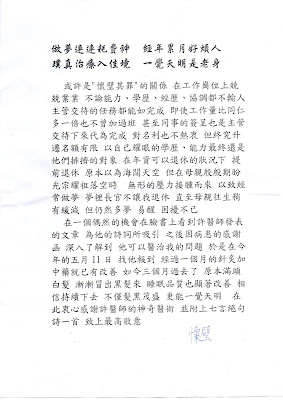 做夢連連耗費神　經年累月好煩人
璞真治療入佳境　一覺天明是老身
或許是"懷璧其罪"的關係 在工作崗位上兢
兢業業 不論能力、學歷、經歷、協調都不輸人
主管交待的任務都能如完成 即使工作量比同仁
多一倍也不曾加過班 甚至同事的簽呈也是主管
交待下來代為完成 對名利也不熱衷 但終究升
遷名額有限 以自己耀眼的學歷、能力最終還是
他們排擠的對象 在年資可以退休的狀況下 提
前退休 原本以為海闊天空 但在母親殷殷期盼
光宗耀祖落空時 無形的壓力接踵而來 以致經
常做夢 夢裡長官不讓我退休 直至母親往生稍
有緩減 但仍然多夢 易醒 困擾不已
在一個偶然的機會在臉書上看到許醫師發表
的文章 為他的詩詞所吸引 之後因病患的感謝
函 深入了解到 他可以醫治我的問題 於是在今
年的五月 11 日 找他報到 經過一個月的針灸加
中藥就已有改善 如今三個月過去了 原本滿頭
白髮 漸漸冒出黑髮來 睡眠品質也顯著改善 相
信持續下去 不僅髮黑茂盛 更能一覺天明 在
此衷心感謝許醫師的神奇醫術 並附上七言絕句
詩一首 致上最高敬意